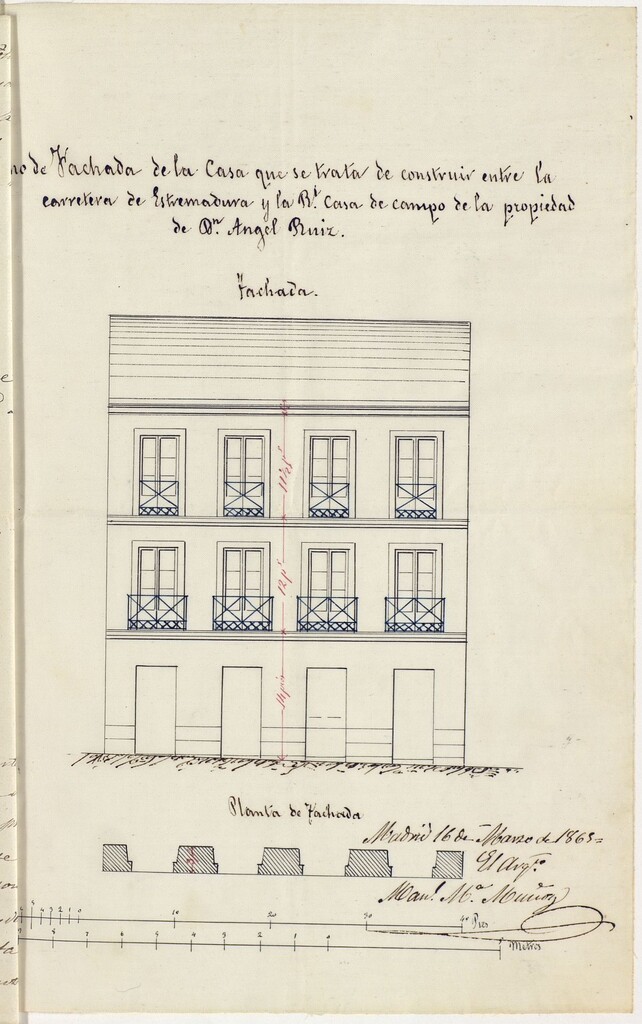 no de Fachada de la Casa que se trata de construir entre la
carretera de Estremadura y la Rl. Casa de campo de la propiedad
de Dn. Angel Ruiz.
Fachada.
12 ps
14 pies
Planta de Fachada
3 ps
Madrid 16 de Marzo de 1863=
El Arqto.
Manl. Ma. Muñoz
5 4 3 2 1 0 10 20 30 40 Pies
8 7 6 5 4 3 2 1 0 Metros